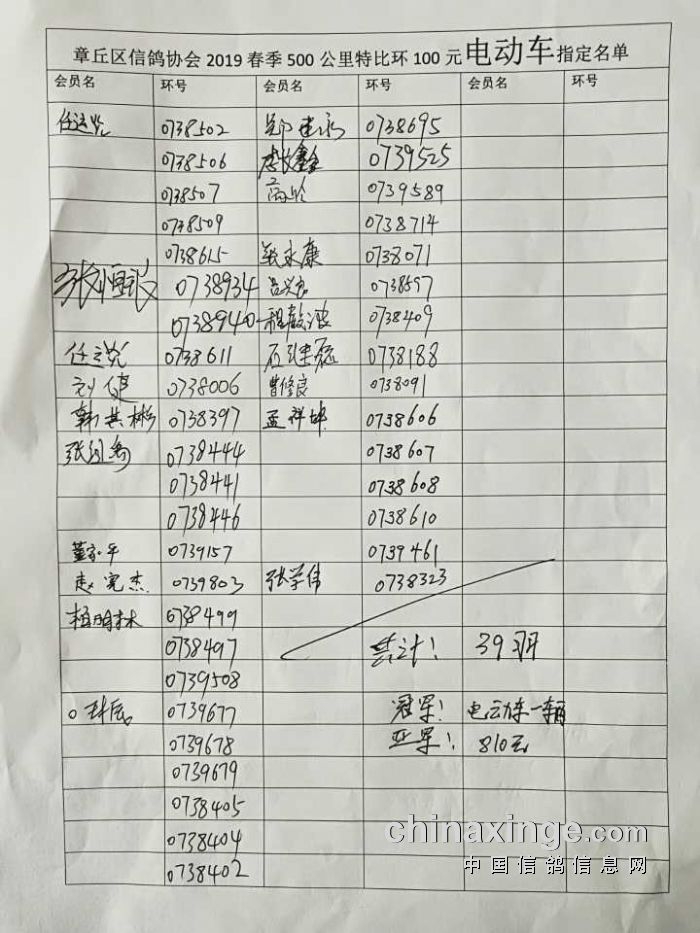 章丘区信鸽协会2019春季500公里特比环100元电动车指定名单
会员名 环号 会员名 环号 会员名 环号
0738502 0738695
0738506 0739525
0738507 0739589
0738509 0738714
0738615 张永康 0738071
张恒银 0738934 0738597
0738940 0738409
0738611 0738188
刘健 0738006 曹修良 0738091
韩其彬 0738397 孟祥坤 0738606
0738444 0738607
0738441 0738608
0738446 0738610
0739157 0739461
赵宪杰 0739803 张学伟 0738323
0738499
0738497 共计! 39羽
0739508
0739677 冠军! 电动车一辆
0739678 亚军! 810元
0739679
0738405
0738404
0738402
chinaxinge.com
中国信鸽信息网